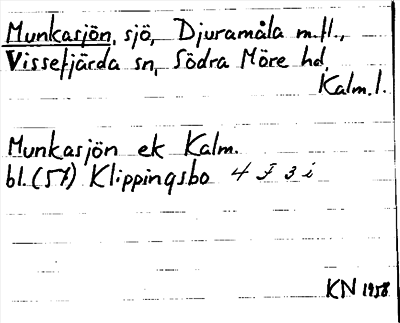 Munkasjön, sjö, Djuramåla m.fl.,
Vissefjärda sn, Södra Möre hd,
Kalm.l.
Munkasjön ek Kalm.
bl.(57) Klippingsbo 4 F 3 i
KN 1958